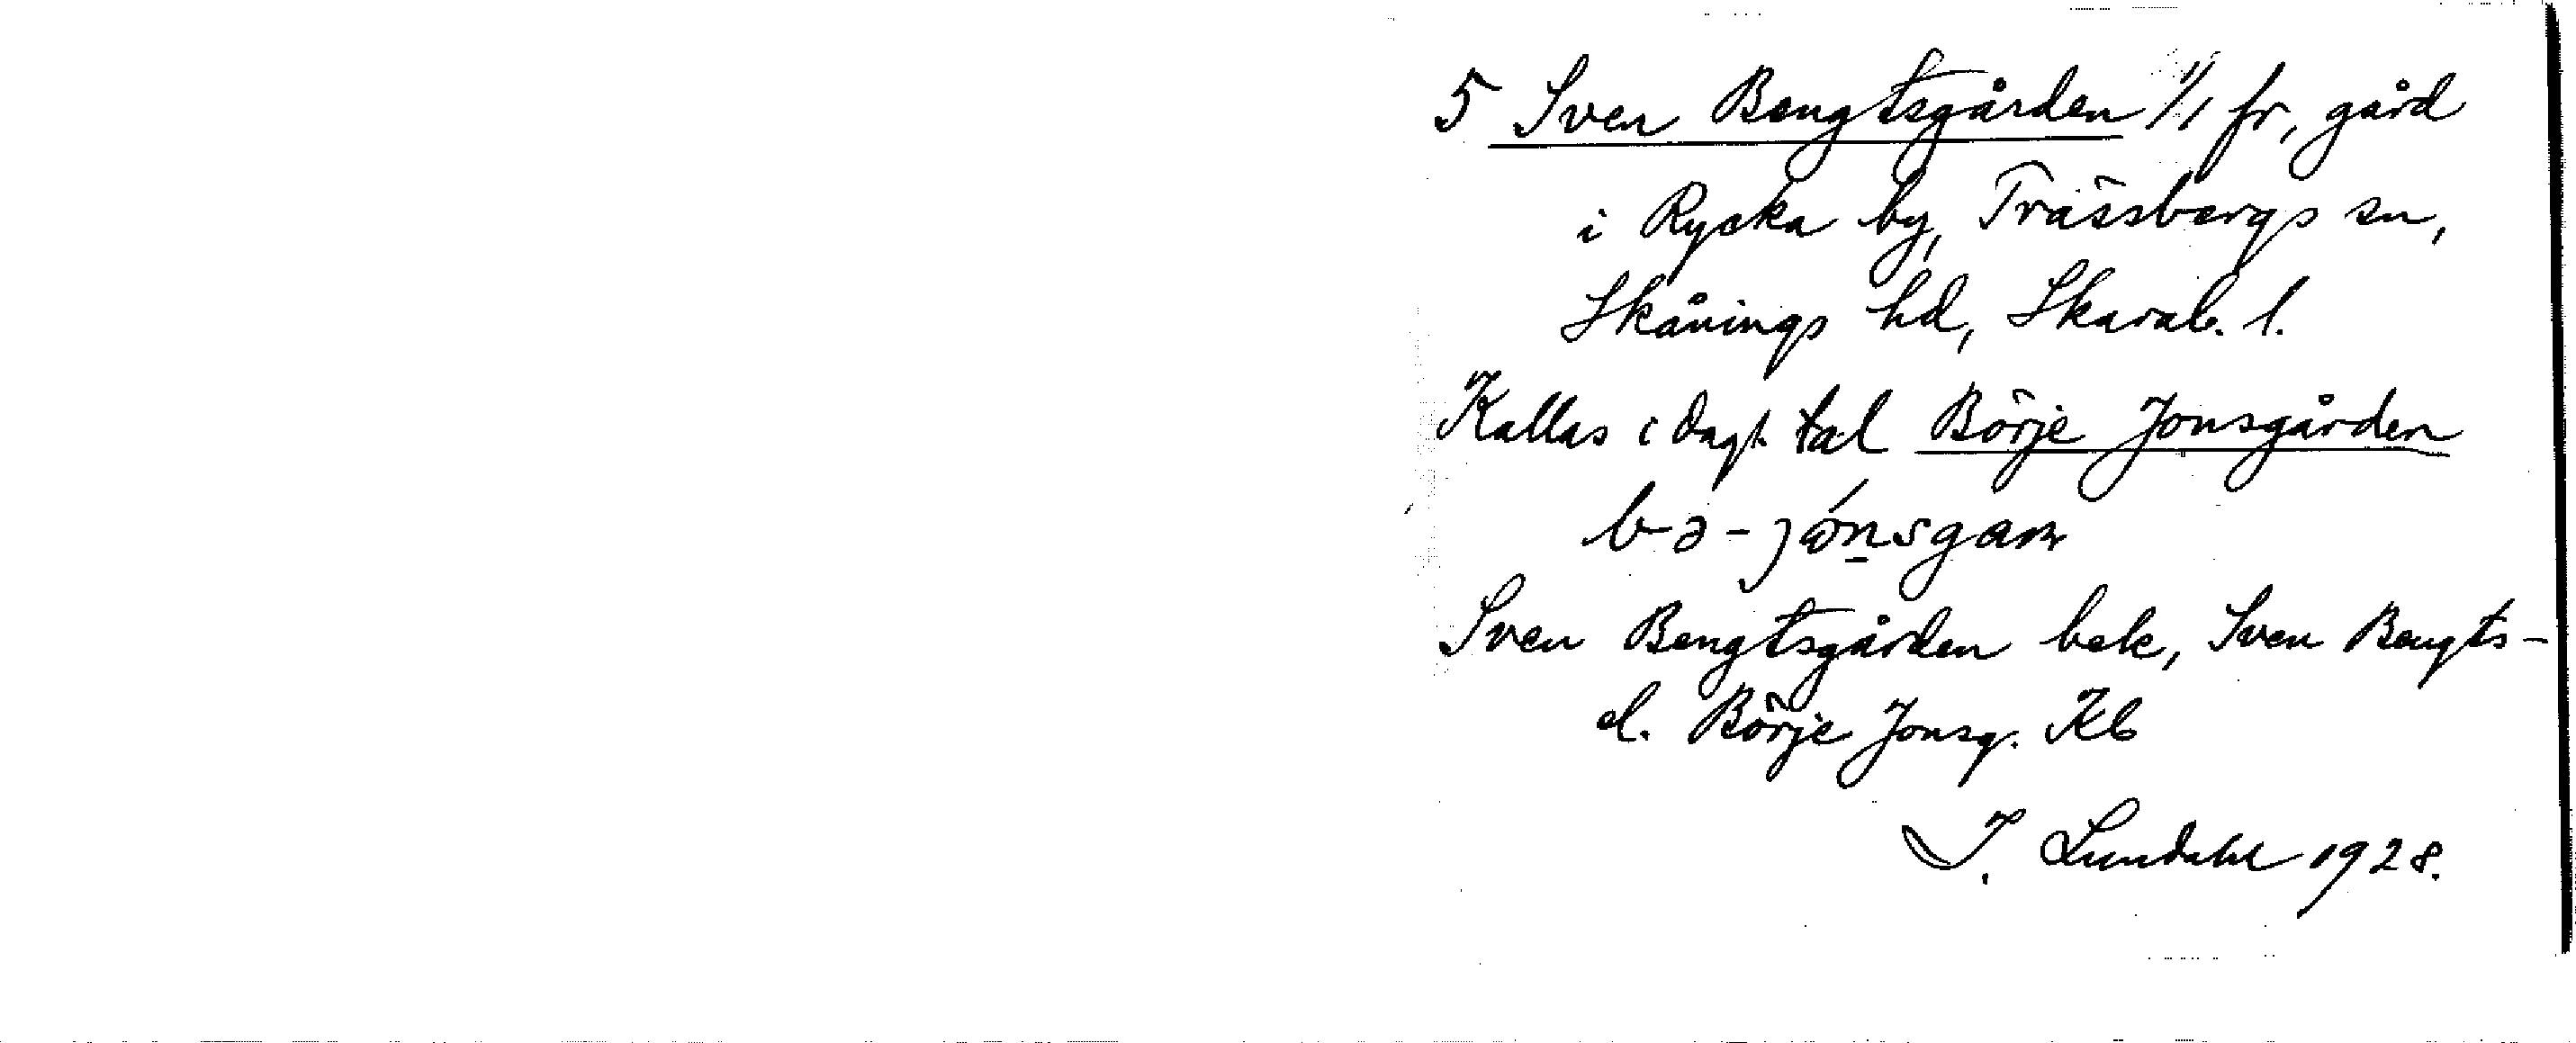 5 Sven Bengtsgården 1/1 fr, gård
i Rycka by, Trässbergs sn,
Skånings hd, Skarab. l.
Kallas i dagl. tal Börje Jonsgården
Sven Bengtsgården bek, Sven Bengts-
el. Börje Jonsg. Kb
I. Lundahl 1928.